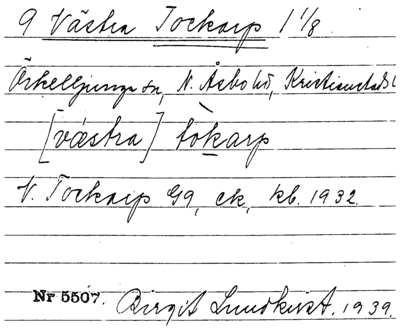 9 Västra Tockarp 1 1/8
Örkelljunga sn, N. Åsbo hd, Kristianstads l
[västra] tòkarp
V. Tockarp G9, ek, kb. 1932.
Nr 5507. Birgit Lundkvist. 1939.